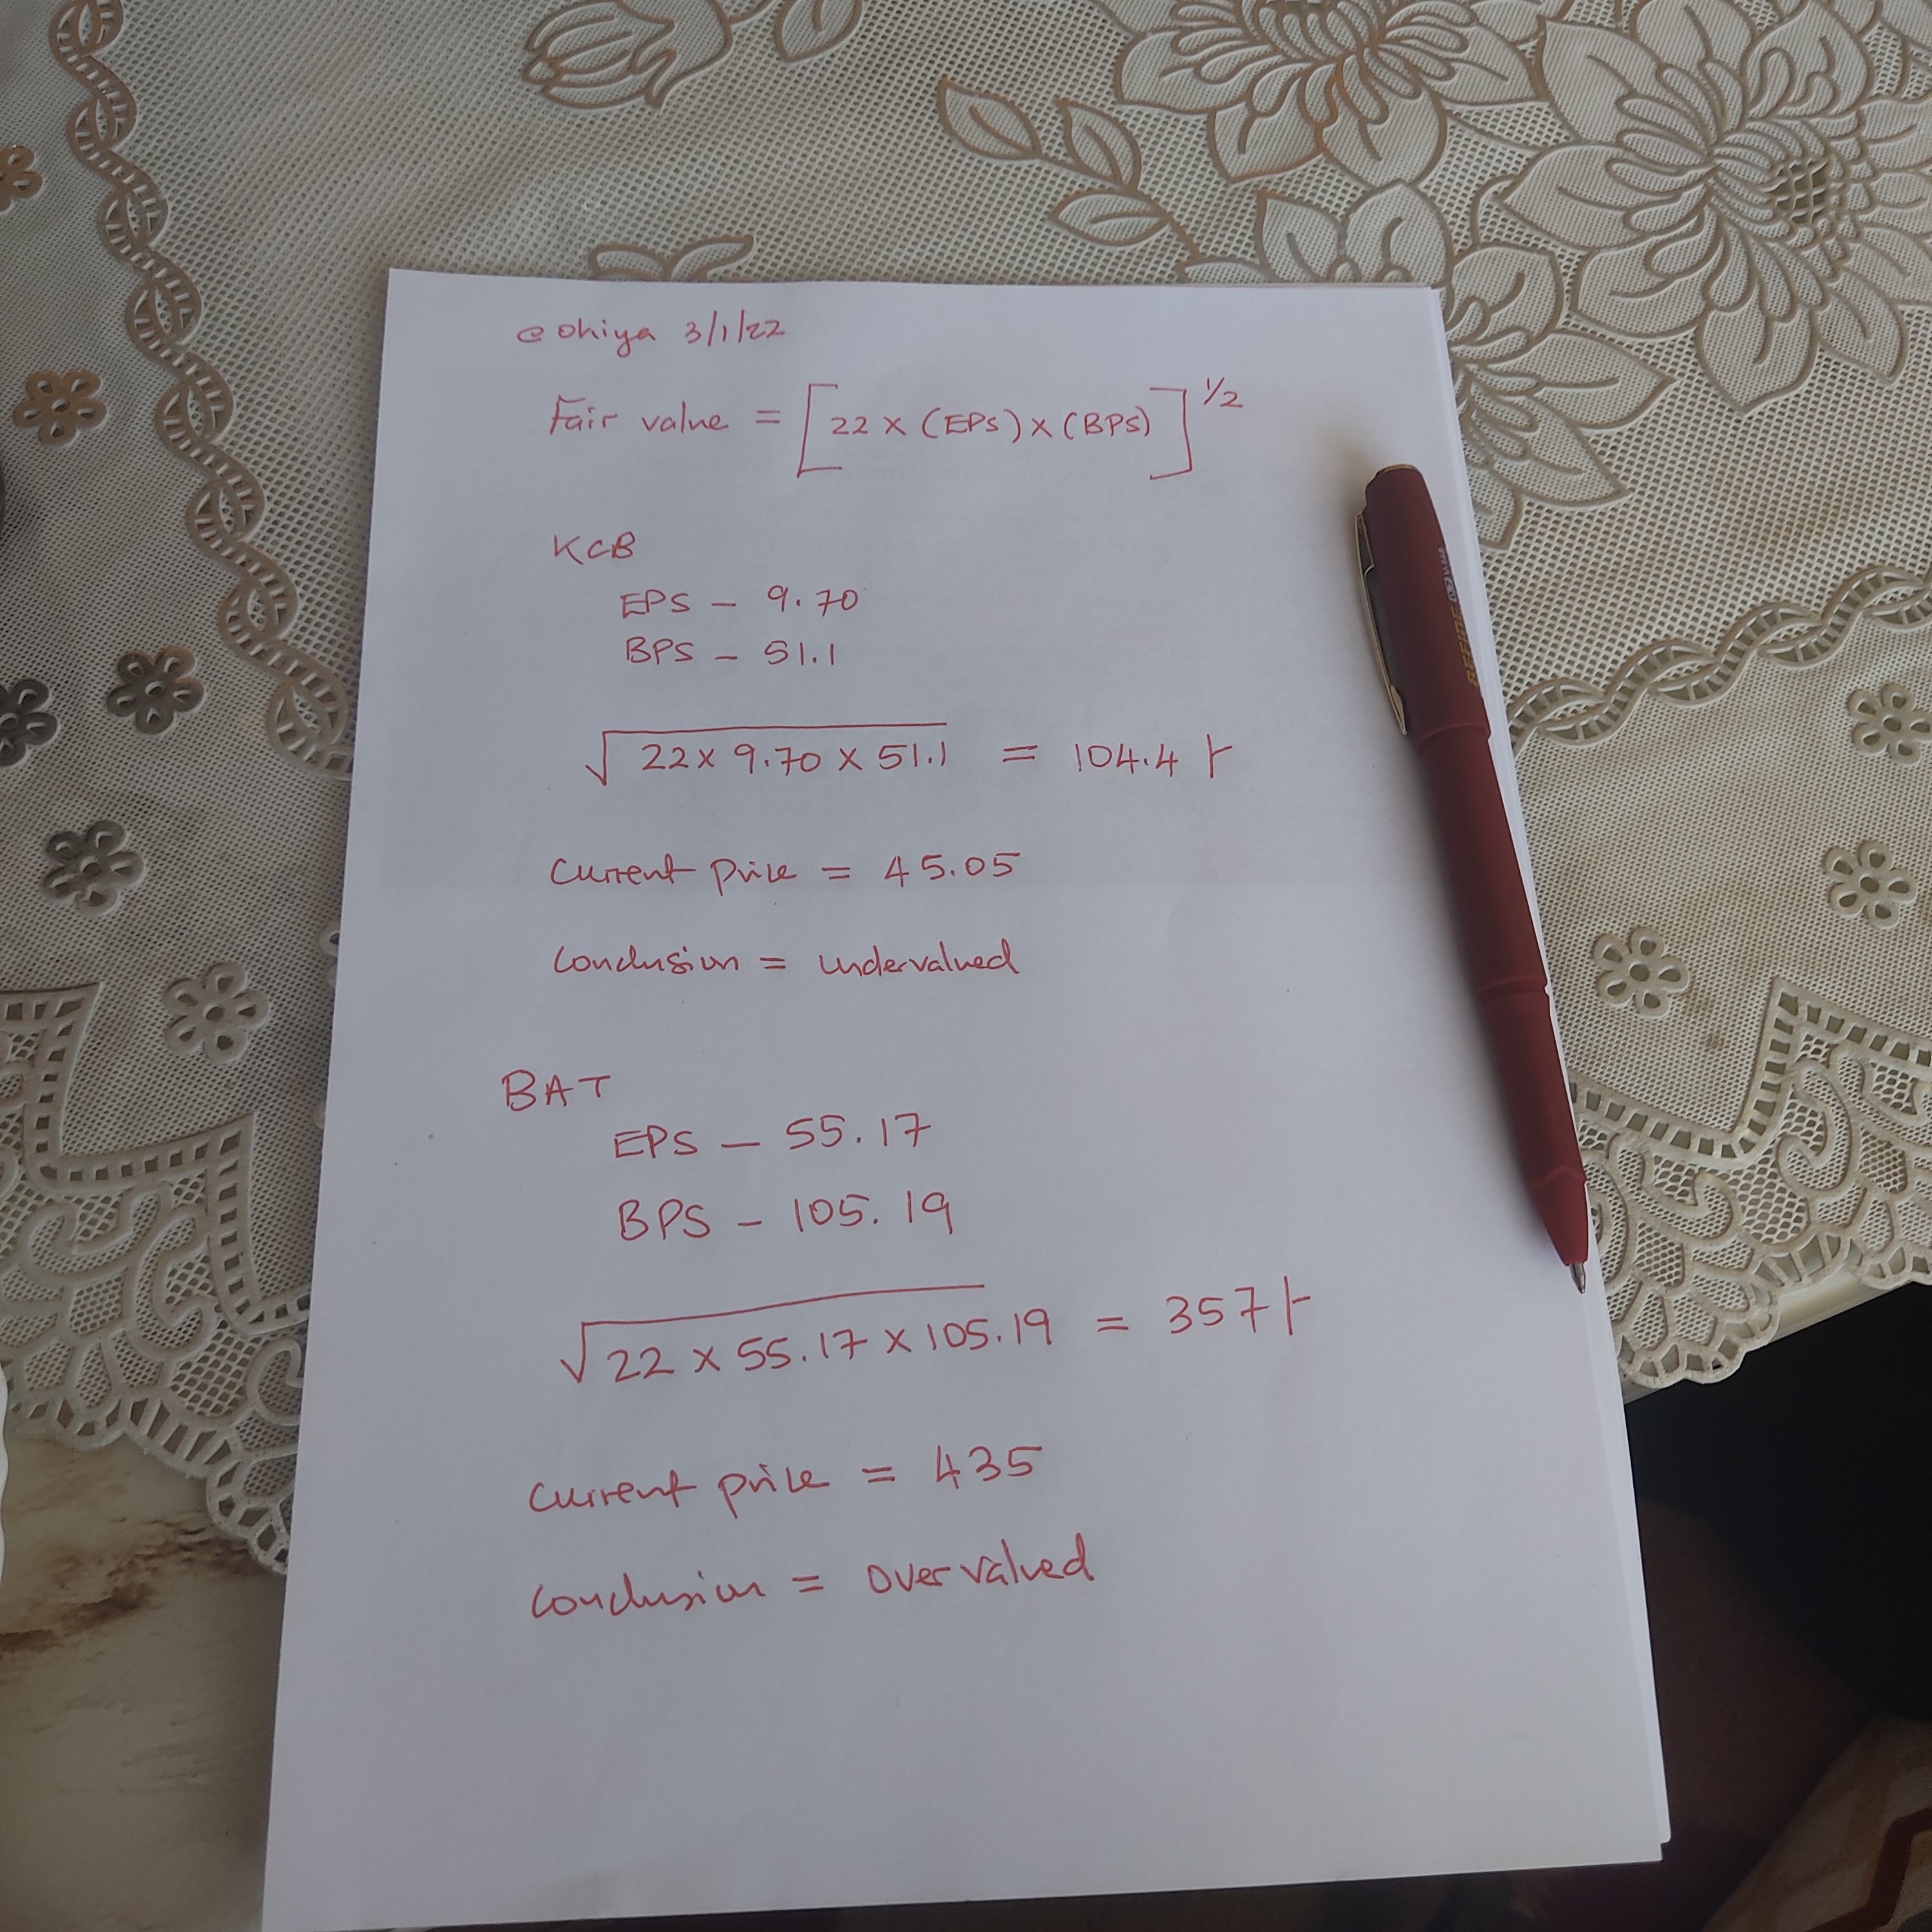 @ohiya 3/1/22
Fair value = [22 x (EPS) x (BPS)]^1/2
KCB
EPS - 9.70
BPS - 51.1
√22 x 9.70 x 51.1 = 104.4
Current price = 45.05
Conclusion = undervalued
BAT
EPS - 55.17
BPS - 105.19
√22 x 55.17 x 105.19 = 357
Current price = 435
Conclusion = overvalued